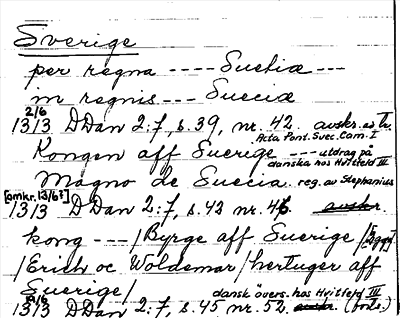 Sverige
per regna ---- Suetiæ ---
in regnis --- Sueciæ
2/6
1313 DDan 2:7, s.39, nr. 42. avskr. av tr.
Acta Pont. Svec. Cam. I
Kongen aff Suerige --- utdrag på
danska hos Hvitfeld III
Magno de Suecia. reg. av Stephanius
[omkr. 13/6?]
1313 DDan 2:7, s.42 nr.46. avskr
kong --- /Byrge aff Suerige /
/Erich oc Woldemar/hertuger aff
Suerige/ dansk övers. hos Hvitfeld III
1313 DDan 2:7, s.45 nr.52. avskr. (forts.)